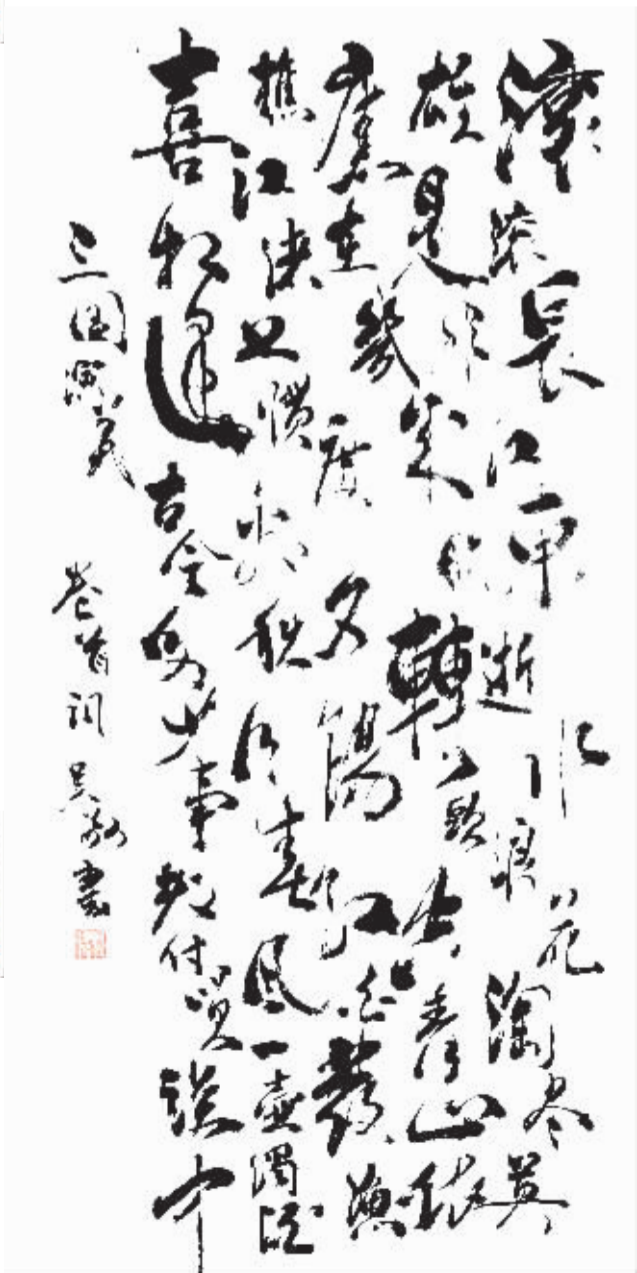 滚滚長江東逝水浪花淘尽英
雄是非成敗轉頭空青山依
舊在幾度夕陽紅白發漁
樵江渚上慣看秋月春風一壺濁酒
喜相逢古今多少事都付笑談中
三國演义 卷首詞 吴 書